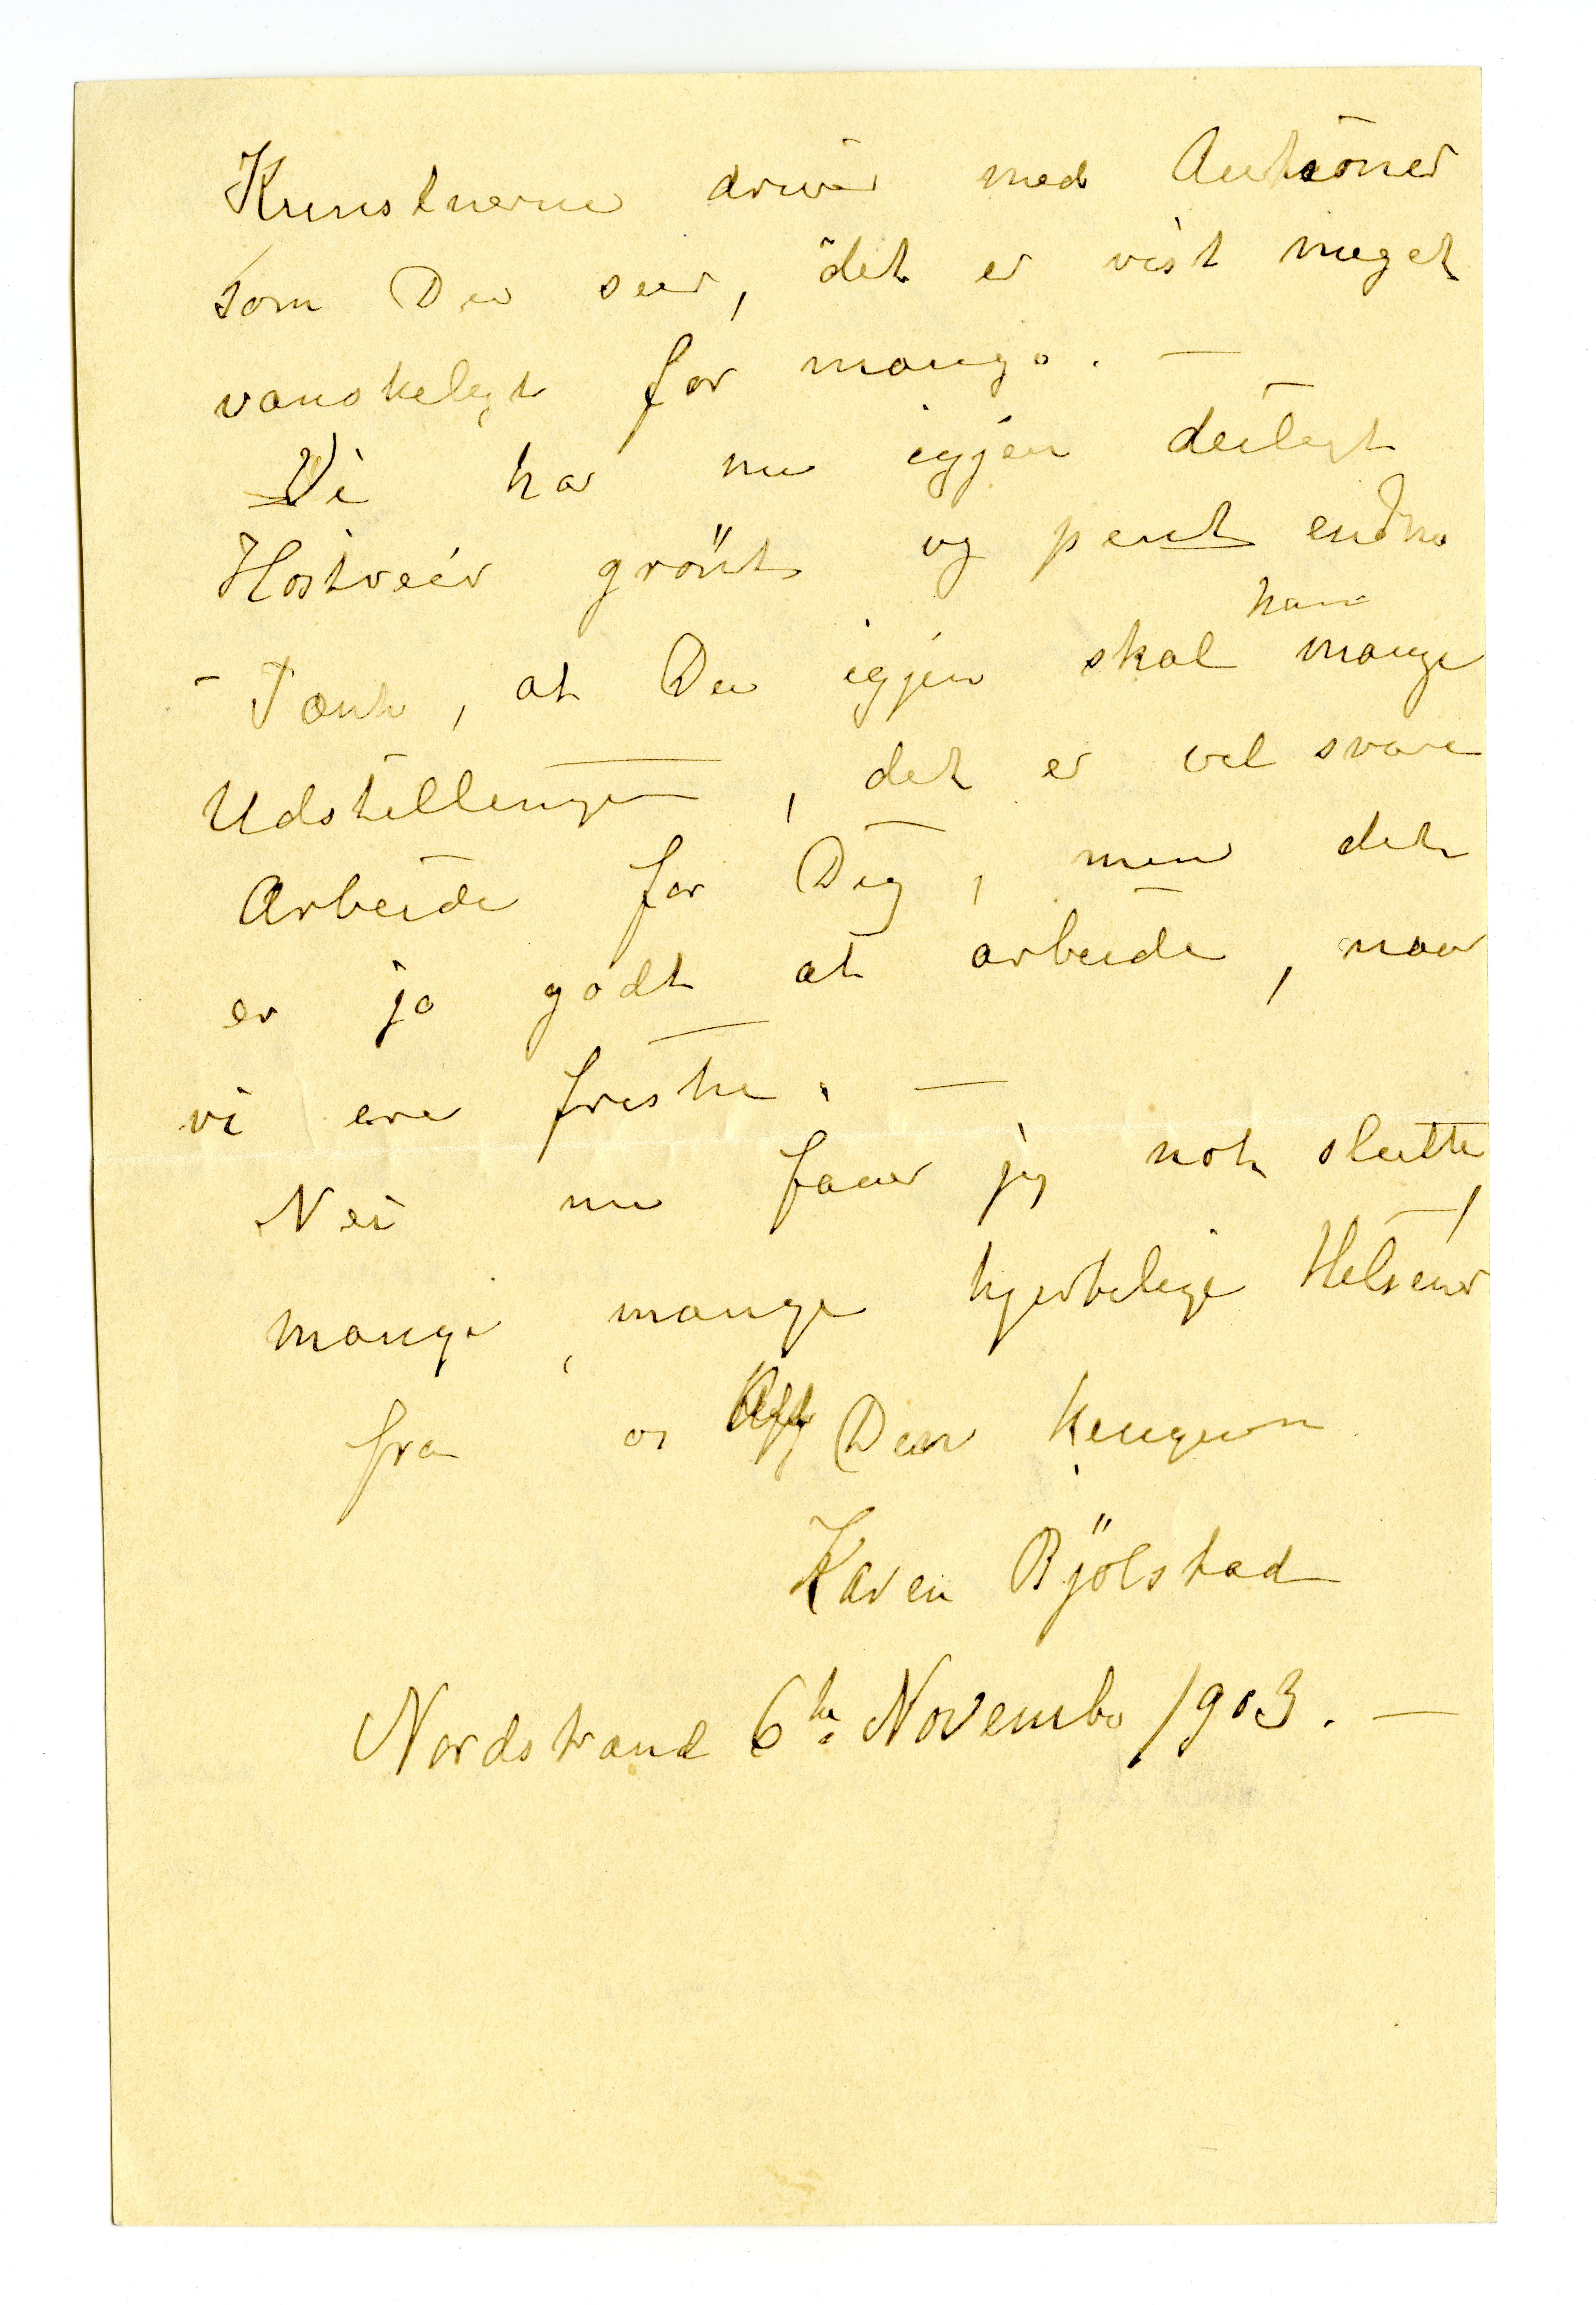 Kunstnerne driver med Auktioner
som Du seer, det er vist meget
vanskeligt for mange. —
Vi har nu igjen deiligt
Høstveir grönt og pent endnu
- Tænk, at Du igjen skal have mange
Udstillinger, det er vel svare
Arbeide for Dig, men det
er jo godt at arbeide, naar
vi ere friske. —
Nei nu faaer jeg nok slutte,
mange, mange hjertelige Helsener
fra os Din hengivne
Karen Bjölstad
Nordstrand 6te November 1903. —